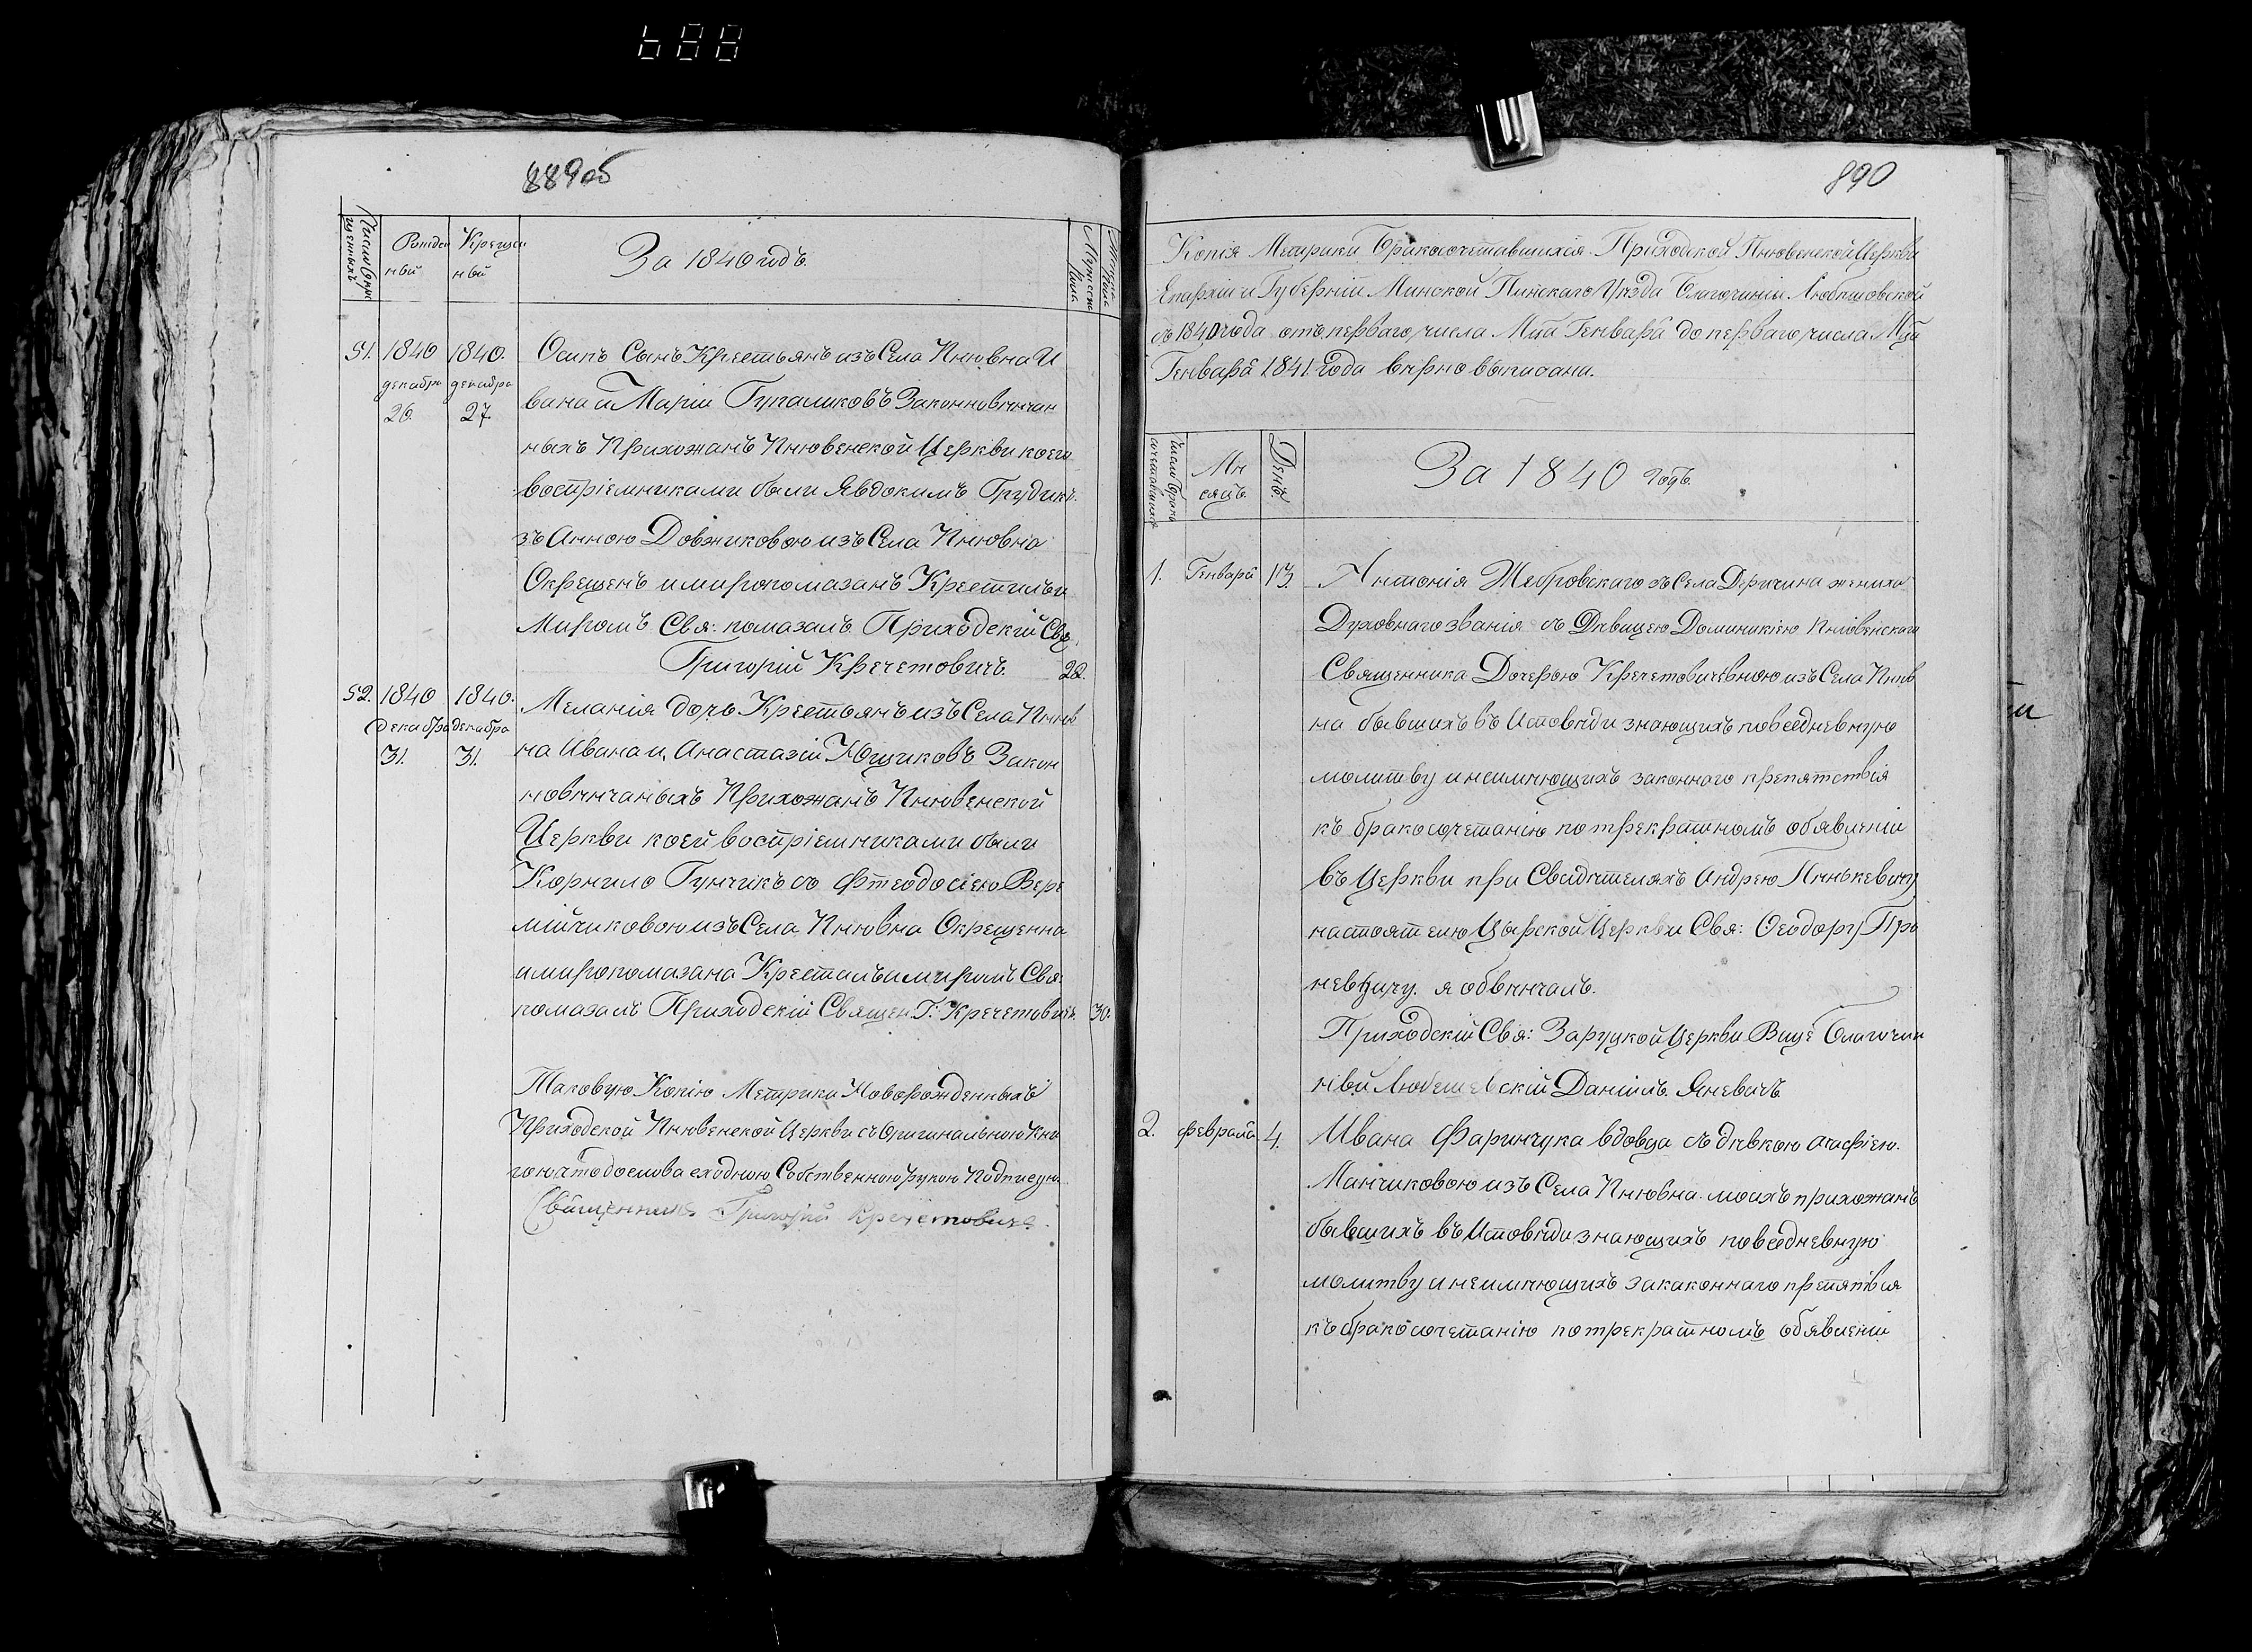 688
889об
Рожден Крещен
ный ный
За 1840 годъ.
51. 1840 1840.
декабра декабра
26. 27
Осипъ Сынъ Крестьянъ изъ Села Пнювна И
вана и Маріи Гупаликовъ Законновѣнчан
ныхъ Прихожанъ Пнювенской Церкви коего
воспріемниками были Явдокимъ Грудикъ
зъ Анною Довжиковою изъ Села Пнювна
Окрещенъ и миропомазанъ Крестилъ и
Миромъ Свя: помазалъ Приходскій Свя:
Григорій Кречетовичъ. 22.
52. 1840 1840.
декабра декабра
31. 31.
Меланія дочъ Крестьянъ изъ Села Пнюв
на Ивана и Анастазіи Ющиковъ Закон
новѣнчаныхъ Прихожанъ Пнювенской
Церкви коей воспріемниками были
Корнило Гунчикъ со Фтеодосіею Вере
мійчиковою изъ Села Пнювна Окрещенна
и миропомазана Крестилъ и миромъ Свя:
помазалъ Приходскій Священ. Г: Кречетовичъ. 30.
Таковую Копію Метрики Новорожденныхъ
Приходской Пнювенской Церкви съ Оригинальною Кни
гою что дослова сходною Собственною рукою Подписую
Священникъ Григорій Кречетовичъ.
890
Копія Метрики Бракосочетавшихся Приходской Пнювенской Церкви
Епархіи и Губерніи Минской Пинскаго Уѣзда Благочинія Любешовской
съ 1840 года отъ перваго числа Мца Генвара до перваго числа Мца
Генвара 1841. Года вѣрно выписана.
Мѣ
сяцъ.
День.
За 1840 годъ.
1. Генвара 13.
Антонія Жебровскаго зъ Села Деричина жениха
Духовнаго званія съ Дѣвицею Доминикіею Пнювенскаго
Священника Дочерою Кречетовичевною изъ Села Пнюв
на бывшихъ въ Исповѣди знающихъ повседневную
молитву и неимѣющихъ законного препятствія
къ бракосочетанію по трекратномъ обявленіи
въ Церкви при Свидѣтеляхъ Андрею Пинькевичу
настоятелю Цырской Церкви Свя: Ѳеодору Про
невичу. я обвѣнчалъ.
Приходскій Свя: Заруцкой Церкви Вице Благочин
ный Любешевскій Даніилъ Яневичъ
2. Феврала 4.
Ивана Фаринчука вдовца съ дѣвкою Агафіею.
Манчиковою изъ Села Пнювна моихъ прихожанъ
бывшихъ въ Исповѣди знающихъ повседневную
молитву и неимѣющихъ закаконнаго препятвія
къ бракосочетанію по трекратномъ обявленіи